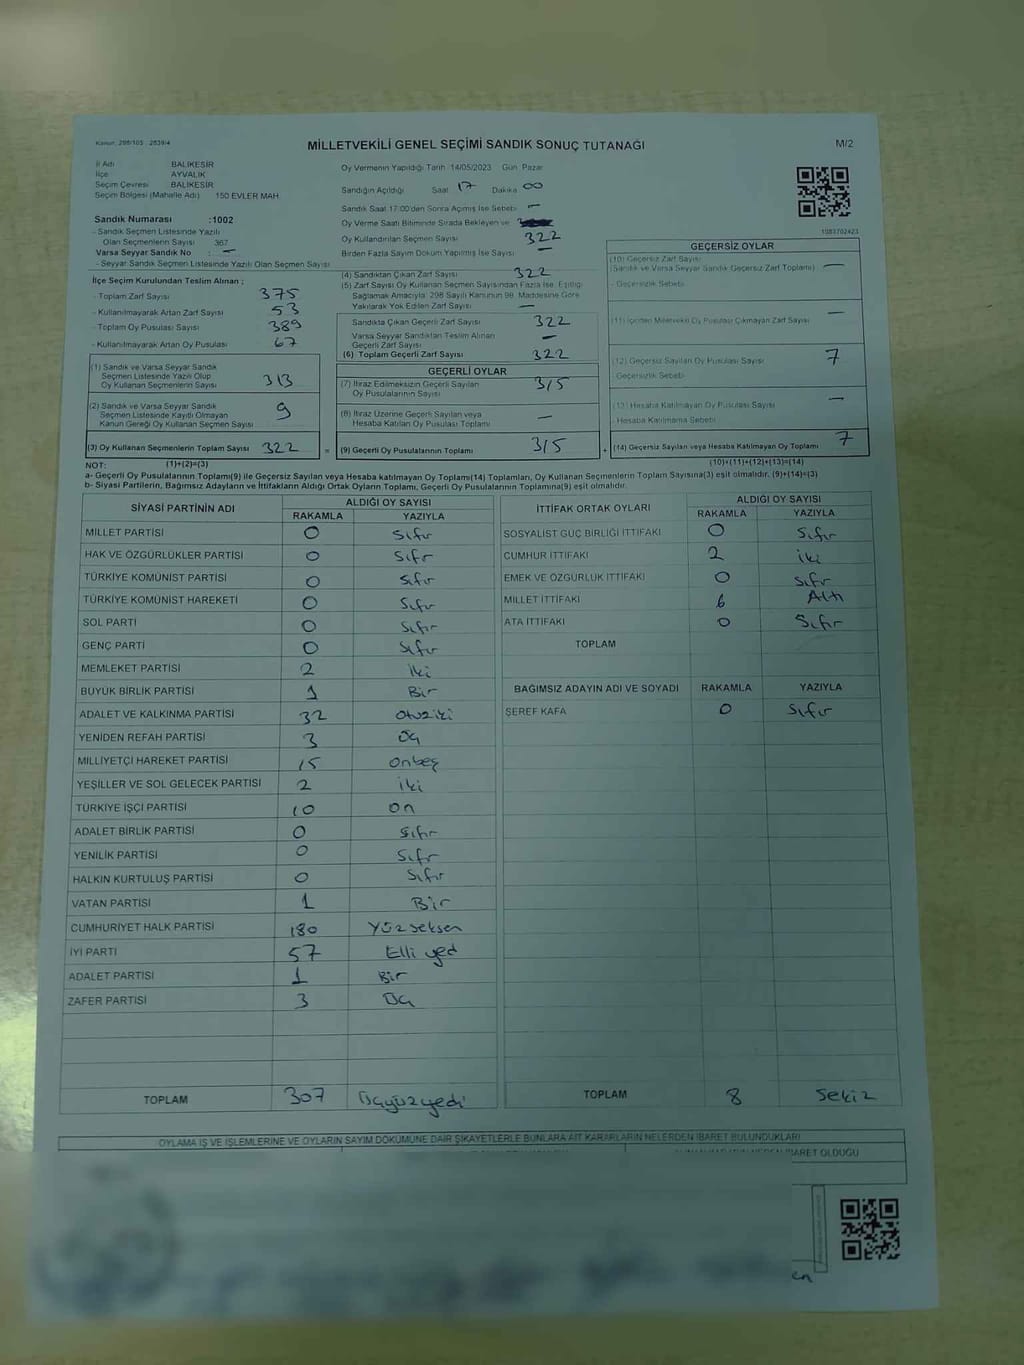 Kanun: 298/105 2839/4
MİLLETVEKİLİ GENEL SEÇİMİ SANDIK SONUÇ TUTANAĞI
M/2
İl Adı BALIKESİR
İlçe AYVALIK
Seçim Çevresi BALIKESİR
Seçim Bölgesi (Mahalle Adı) 150 EVLER MAH.
Sandık Numarası :1002
- Sandık Seçmen Listesinde Yazılı
Olan Seçmenlerin Sayısı 367
Varsa Seyyar Sandık No : —
- Seyyar Sandık Seçmen Listesinde Yazılı Olan Seçmen Sayısı
Oy Vermenin Yapıldığı Tarih 14/05/2023 Gün Pazar
Sandığın Açıldığı Saat 17 Dakika 00
Sandık Saat 17:00'den Sonra Açılmış İse Sebebi —
Oy Verme Saati Bitiminde Sırada Bekleyen ve
Oy Kullandırılan Seçmen Sayısı 322
Birden Fazla Sayım Döküm Yapılmış İse Sayısı —
1083702423
İlçe Seçim Kurulundan Teslim Alınan ;
- Toplam Zarf Sayısı 375
- Kullanılmayarak Artan Zarf Sayısı 53
- Toplam Oy Pusulası Sayısı 389
- Kullanılmayarak Artan Oy Pusulası 67
(1) Sandık ve Varsa Seyyar Sandık
Seçmen Listesinde Yazılı Olup
Oy Kullanan Seçmenlerin Sayısı 313
(2) Sandık ve Varsa Seyyar Sandık
Seçmen Listesinde Kayıtlı Olmayan
Kanun Gereği Oy Kullanan Seçmen Sayısı 9
(3) Oy Kullanan Seçmenlerin Toplam Sayısı 322
(4) Sandıktan Çıkan Zarf Sayısı 322
(5) Zarf Sayısı Oy Kullanan Seçmen Sayısından Fazla İse, Eşitliği
Sağlamak Amacıyla 298 Sayılı Kanunun 98. Maddesine Göre
Yakılarak Yok Edilen Zarf Sayısı —
Sandıkta Çıkan Geçerli Zarf Sayısı 322
Varsa Seyyar Sandıktan Teslim Alınan
Geçerli Zarf Sayısı —
(6) Toplam Geçerli Zarf Sayısı 322
GEÇERLİ OYLAR
(7) İtiraz Edilmeksizin Geçerli Sayılan
Oy Pusulasının Sayısı 315
(8) İtiraz Üzerine Geçerli Sayılan veya
Hesaba Katılan Oy Pusulası Toplamı —
= (9) Geçerli Oy Pusulalarının Toplamı 315
GEÇERSİZ OYLAR
(10) Geçersiz Zarf Sayısı
(Sandık ve Varsa Seyyar Sandık Geçersiz Zarf Toplamı) —
- Geçersizlik Sebebi
(11) İçinden Milletvekili Oy Pusulası Çıkmayan Zarf Sayısı —
(12) Geçersiz Sayılan Oy Pusulası Sayısı 7
- Geçersizlik Sebebi
(13) Hesaba Katılmayan Oy Pusulası Sayısı —
- Hesaba Katılmama Sebebi
+ (14) Geçersiz Sayılan veya Hesaba Katılmayan Oy Toplamı 7
NOT: (1)+(2)=(3)
(10)+(11)+(12)+(13)=(14)
a- Geçerli Oy Pusulalarının Toplamı(9) ile Geçersiz Sayılan veya Hesaba katılmayan Oy Toplamı(14) Toplamları, Oy Kullanan Seçmenlerin Toplam Sayısına(3) eşit olmalıdır. (9)+(14)=(3)
b- Siyasi Partilerin, Bağımsız Adayların ve İttifakların Aldığı Ortak Oyların Toplamı, Geçerli Oy Pusulalarının Toplamına(9) eşit olmalıdır.
SİYASİ PARTİNİN ADI ALDIĞI OY SAYISI
RAKAMLA YAZIYLA
MİLLET PARTİSİ 0 Sıfır
HAK VE ÖZGÜRLÜKLER PARTİSİ 0 Sıfır
TÜRKİYE KOMÜNİST PARTİSİ 0 Sıfır
TÜRKİYE KOMÜNİST HAREKETİ 0 Sıfır
SOL PARTİ 0 Sıfır
GENÇ PARTİ 0 Sıfır
MEMLEKET PARTİSİ 2 İki
BÜYÜK BİRLİK PARTİSİ 1 Bir
ADALET VE KALKINMA PARTİSİ 32 Otuziki
YENİDEN REFAH PARTİSİ 3 Üç
MİLLİYETÇİ HAREKET PARTİSİ 15 onbeş
YEŞİLLER VE SOL GELECEK PARTİSİ 2 iki
TÜRKİYE İŞÇİ PARTİSİ 10 on
ADALET BİRLİK PARTİSİ 0 Sıfır
YENİLİK PARTİSİ 0 Sıfır
HALKIN KURTULUŞ PARTİSİ 0 Sıfır
VATAN PARTİSİ 1 Bir
CUMHURİYET HALK PARTİSİ 180 Yüzseksen
İYİ PARTİ 57 Elli yedi
ADALET PARTİSİ 1 Bir
ZAFER PARTİSİ 3 Üç
TOPLAM 307 Üçyüzyedi
İTTİFAK ORTAK OYLARI ALDIĞI OY SAYISI
RAKAMLA YAZIYLA
SOSYALİST GÜÇ BİRLİĞİ İTTİFAKI 0 Sıfır
CUMHUR İTTİFAKI 2 iki
EMEK VE ÖZGÜRLÜK İTTİFAKI 0 Sıfır
MİLLET İTTİFAKI 6 Altı
ATA İTTİFAKI 0 Sıfır
TOPLAM
BAĞIMSIZ ADAYIN ADI VE SOYADI RAKAMLA YAZIYLA
ŞEREF KAFA 0 Sıfır
TOPLAM 8 Sekiz
OYLAMA İŞ VE İŞLEMLERİNE VE OYLARIN SAYIM DÖKÜMÜNE DAİR ŞİKAYETLERLE BUNLARA AİT KARARLARIN NELERDEN İBARET BULUNDUKLARI
İBARET OLDUĞU